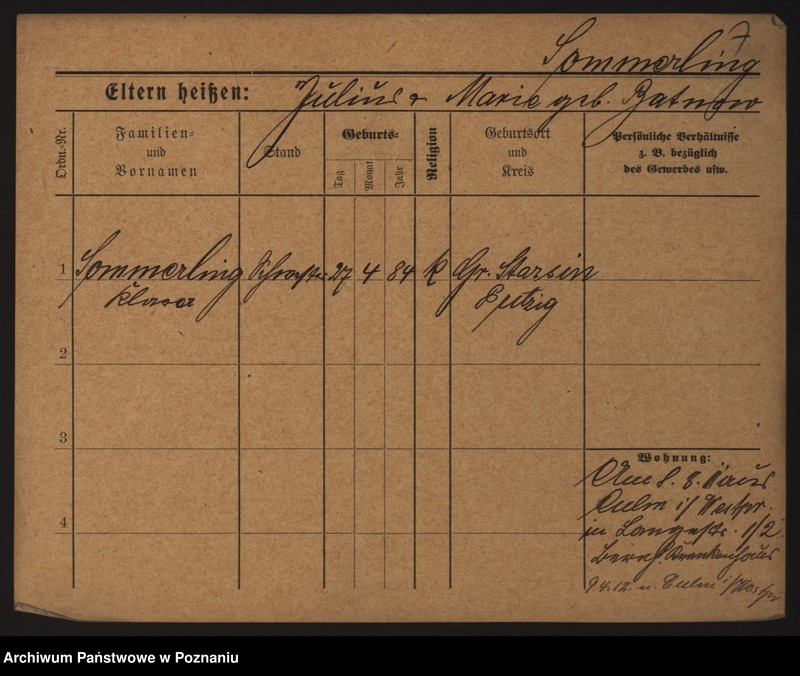 Sommerling
Eltern heißen: Julius & Marie geb.
Ordn.-Nr.
Familien-
und
Vornamen
Stand
Geburts-
Tag
Monat
Jahr
Religion
Geburtsort
und
Kreis
Persönliche Verhältnisse
z. B. bezüglich
des Gewerbes usw.
1 Sommerling 27 4 84 K Gr. Starsin
Putzig
2
3
4
Wohnung:
Am 8. 8. 11 aus
Culm i/ Westpr.
in Langestr. 1/2
Krankenhaus
9.4.12. n. Culm i/Westpr
Archiwum Państwowe w Poznaniu